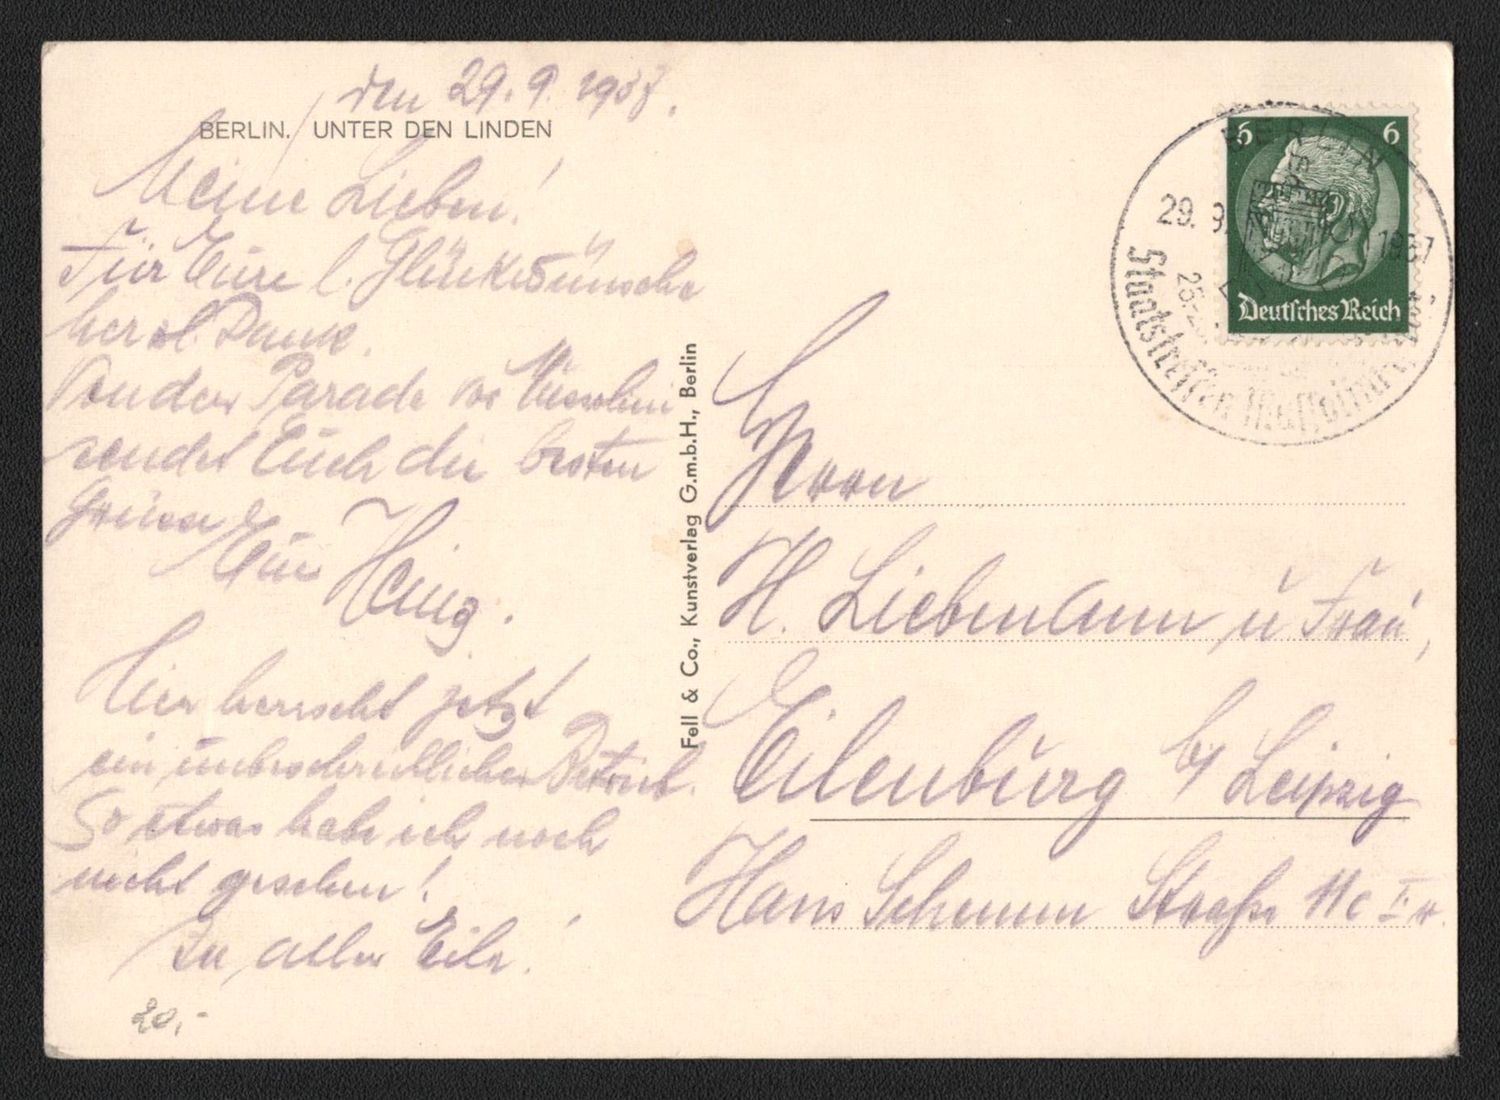 den 29.9.1937.
BERLIN. UNTER DEN LINDEN
Meine Lieben!
Für Eure l. Glückwünsche
herzl. Dank.
Von der Parade vor Mussolini
sendet Euch die besten
Grüsse
Eur Heinz.
Hier herrscht jetzt
ein unbeschreiblicher Betrieb.
So etwas habe ich noch
nicht gesehen!
In aller Eile!
20,-
Fell & Co., Kunstverlag G.m.b.H., Berlin
6 6
Deutsches Reich
BERLIN
29. 9. 1937
25.-29.
Staatstreffen Mussolini
Herrn
H. Liebemann u Frau,
Eilenburg b/ Leipzig
Hans Schemm Straße 11c I r.